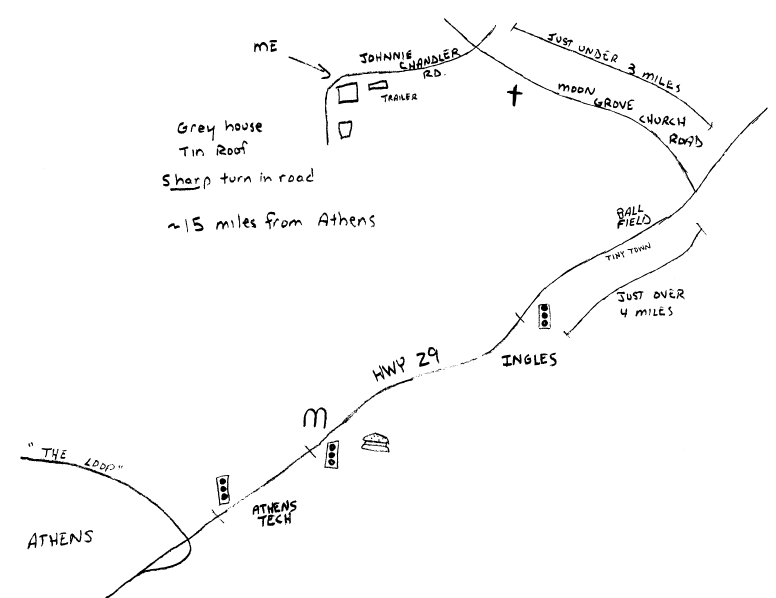 ME
JOHNNIE
CHANDLER
RD.
TRAILER
JUST UNDER
3 MILES
MOON
GROVE
CHURCH
ROAD
Grey house
Tin Roof
Sharp turn in road
~15 miles from Athens
BALL
FIELD
TINY TOWN
JUST OVER
4 MILES
INGLES
HWY 29
M
"THE LOOP"
ATHENS
TECH
ATHENS